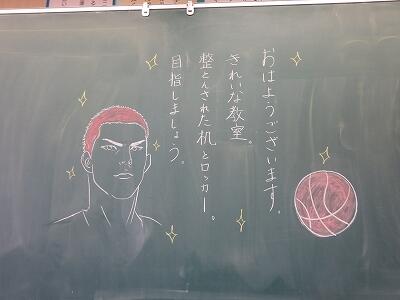 おはようございます。
きれいな教室。
整とんされた机とロッカー。
目指しましょう。